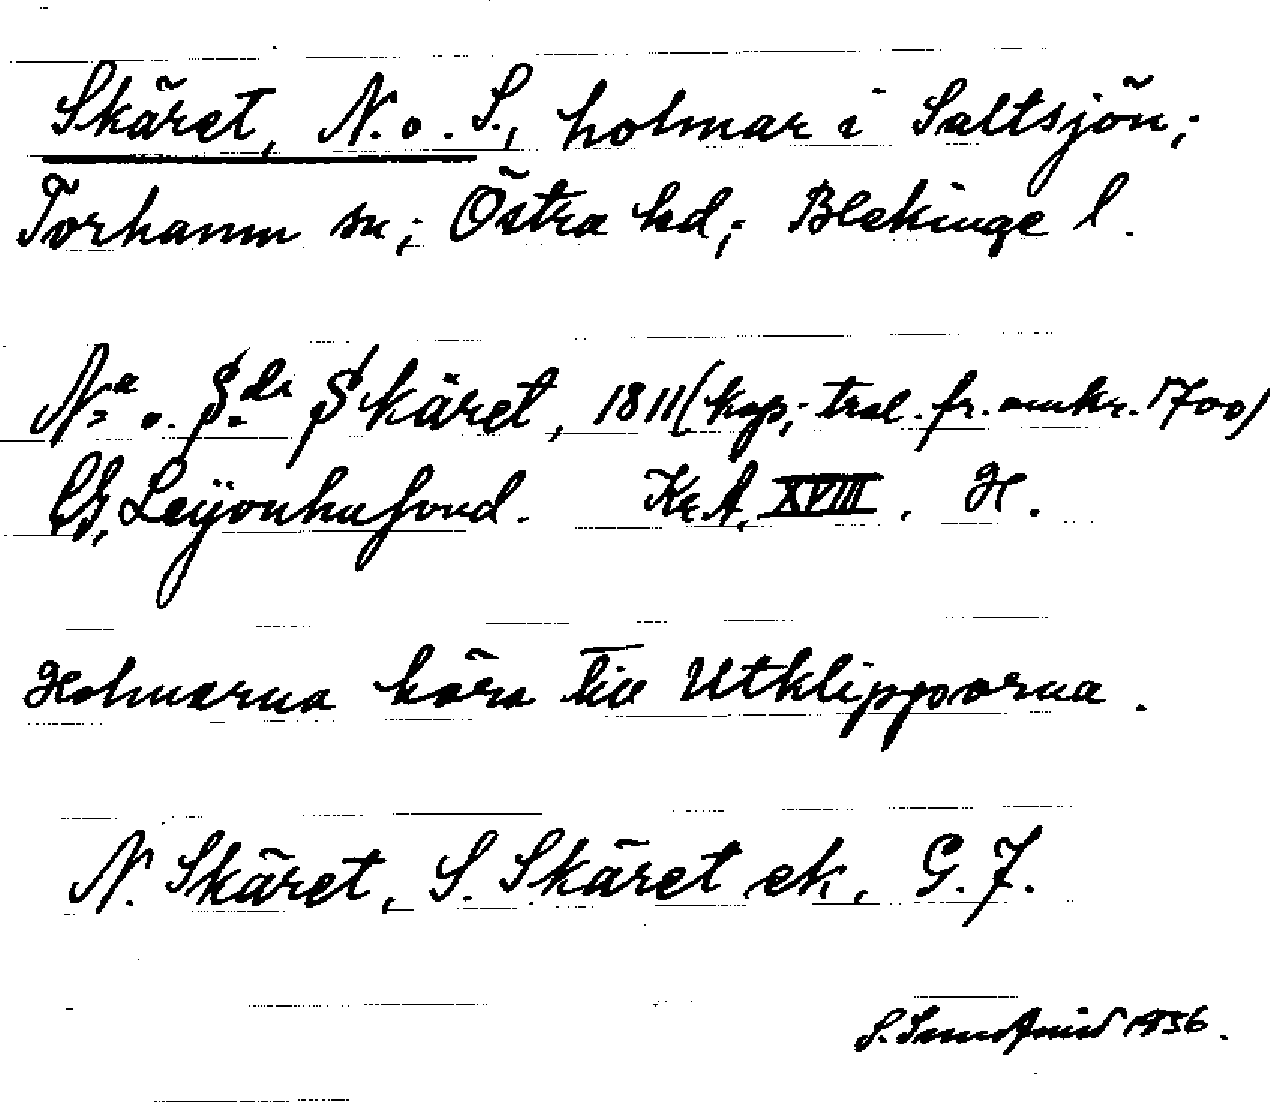 Skäret, N. o. S., holmar i Saltsjön;
Torhamn sn; Östra hd; Blekinge l.
N:a o. S:dr Skäret, 1811 (kop; trol. fr. omkr. 1700)
CG, Leijonhufvud. Kr.A. XVIII. H.
Holmarna höra till Utklipporna.
N. Skäret, S. Skäret ek. G. J.
S. 1936.